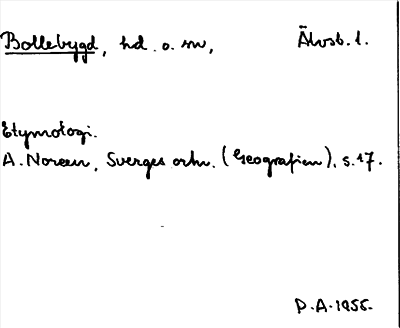 Bollebygd, hd. o. sn, Älvsb. l.
Etymologi.
A. Noreen, Sveriges ortn. (Geografien), s. 17.
P.A. 1955.